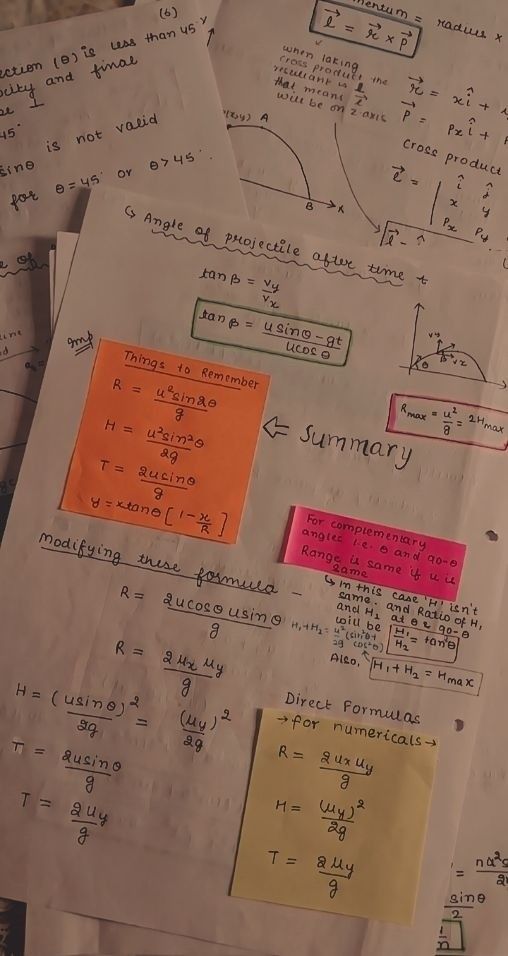 (6)
ection (θ) is less than 45°
ocity and final
be ⊥
45°
is not valid
sinθ
for θ=45° or θ>45°.
mentum = radius x
l⃗ = r⃗ × p⃗
when taking
cross product the
resultant is l
that means l⃗
will be on z axis
r⃗ = xî +
p⃗ = Pxî +
cross product
l⃗ = | î ĵ
x y
Px Py
(x,y) A
B x
l⃗ -
↳ Angle of projectile after time t
tan β = vy/vx
tan β = (u sinθ - gt)/(u cos θ)
vy
vx
β
θ
Imp
Things to Remember
R = u² sin2θ/g
H = u² sin²θ/2g
T = 2u sinθ/g
y = x tanθ [1 - x/R]
⇐ Summary
Rmax = u²/g = 2Hmax
For complementary
angles i.e. θ and 90-θ
Range is same if u is
same
↳ In this case 'H' isn't
same. and Ratio of H₁
and H₂ at θ & 90-θ
will be H₁/H₂ = tan²θ
H₁+H₂ = u²/2g (sin²θ+cos²θ)
Also, H₁+H₂ = Hmax
Modifying these formula -
R = 2u cosθ u sinθ/g
R = 2ux uy/g
H = (u sinθ)²/2g = (uy)²/2g
T = 2u sinθ/g
T = 2uy/g
Direct Formulas
→ for numericals →
R = 2ux uy/g
H = (uy)²/2g
T = 2uy/g
sinθ/2
1/n